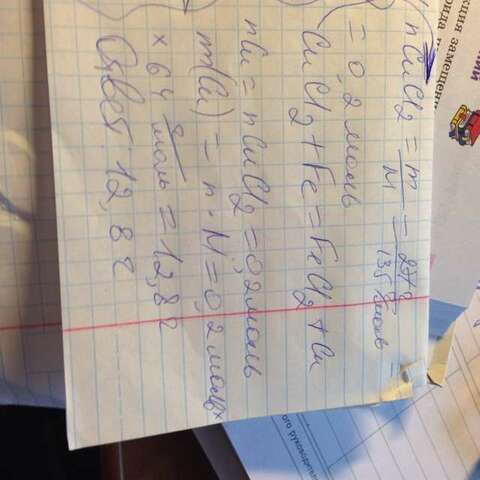 nCuCl2 = m/M = 27 г/135 г/моль
= 0,2 моль
CuCl2 + Fe = FeCl2 + Cu
nCu = nCuCl2 = 0,2 моль
m(Cu) = n · M = 0,2 моль ×
× 64 г/моль = 12,8 г
Ответ: 12,8 г
кция замещени